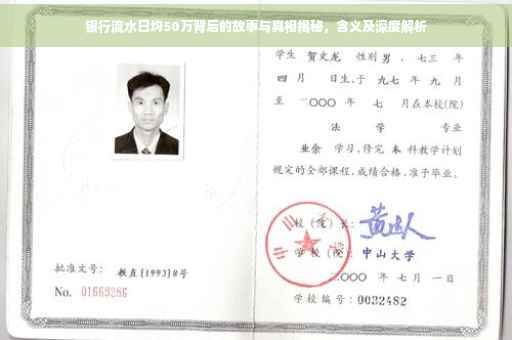 银行流水日均50万背后的故事与真相揭秘，含义及深度解析
学生 贺文龙 性别 男 、七三 年
四 月 日生,于 九七 年 九 月
至 二〇〇〇 年 七 月在本校(院)
法 学 专业
业余 学习,修完 本 科教学计划
规定的全部课程,成绩合格,准予毕业。
校 (院) 长:
学 校 (院): 中山大学
二〇〇〇 年 七 月 一 日
批准文号: 教直[1993]8号
No. 01669286
学校编号: 0032482